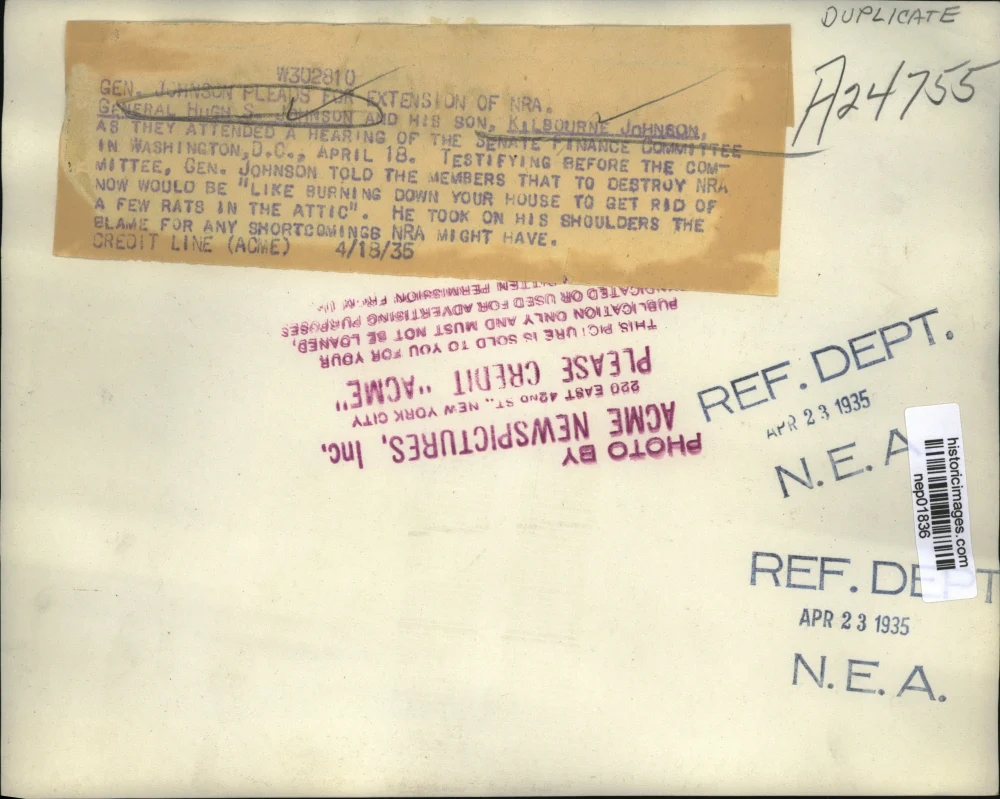 DUPLICATE
A24755
W302810
GEN. JOHNSON PLEADS FOR EXTENSION OF NRA.
GENERAL HUGH S. JOHNSON AND HIS SON, KILBOURNE JOHNSON,
AS THEY ATTENDED A HEARING OF THE SENATE FINANCE COMMITTEE
IN WASHINGTON, D.C., APRIL 18. TESTIFYING BEFORE THE COM-
MITTEE, GEN. JOHNSON TOLD THE MEMBERS THAT TO DESTROY NRA
NOW WOULD BE "LIKE BURNING DOWN YOUR HOUSE TO GET RID OF
A FEW RATS IN THE ATTIC". HE TOOK ON HIS SHOULDERS THE
BLAME FOR ANY SHORTCOMINGS NRA MIGHT HAVE.
CREDIT LINE (ACME) 4/18/35
PHOTO BY
ACME NEWSPICTURES, Inc.
220 EAST 42ND ST., NEW YORK CITY
PLEASE CREDIT "ACME"
THIS PICTURE IS SOLD TO YOU FOR YOUR
PUBLICATION ONLY AND MUST NOT BE LOANED,
SYNDICATED OR USED FOR ADVERTISING PURPOSES
WRITTEN PERMISSION FROM
REF. DEPT.
APR 23 1935
N. E. A
historicimages.com
nep01836
REF. DEPT
APR 23 1935
N. E. A.